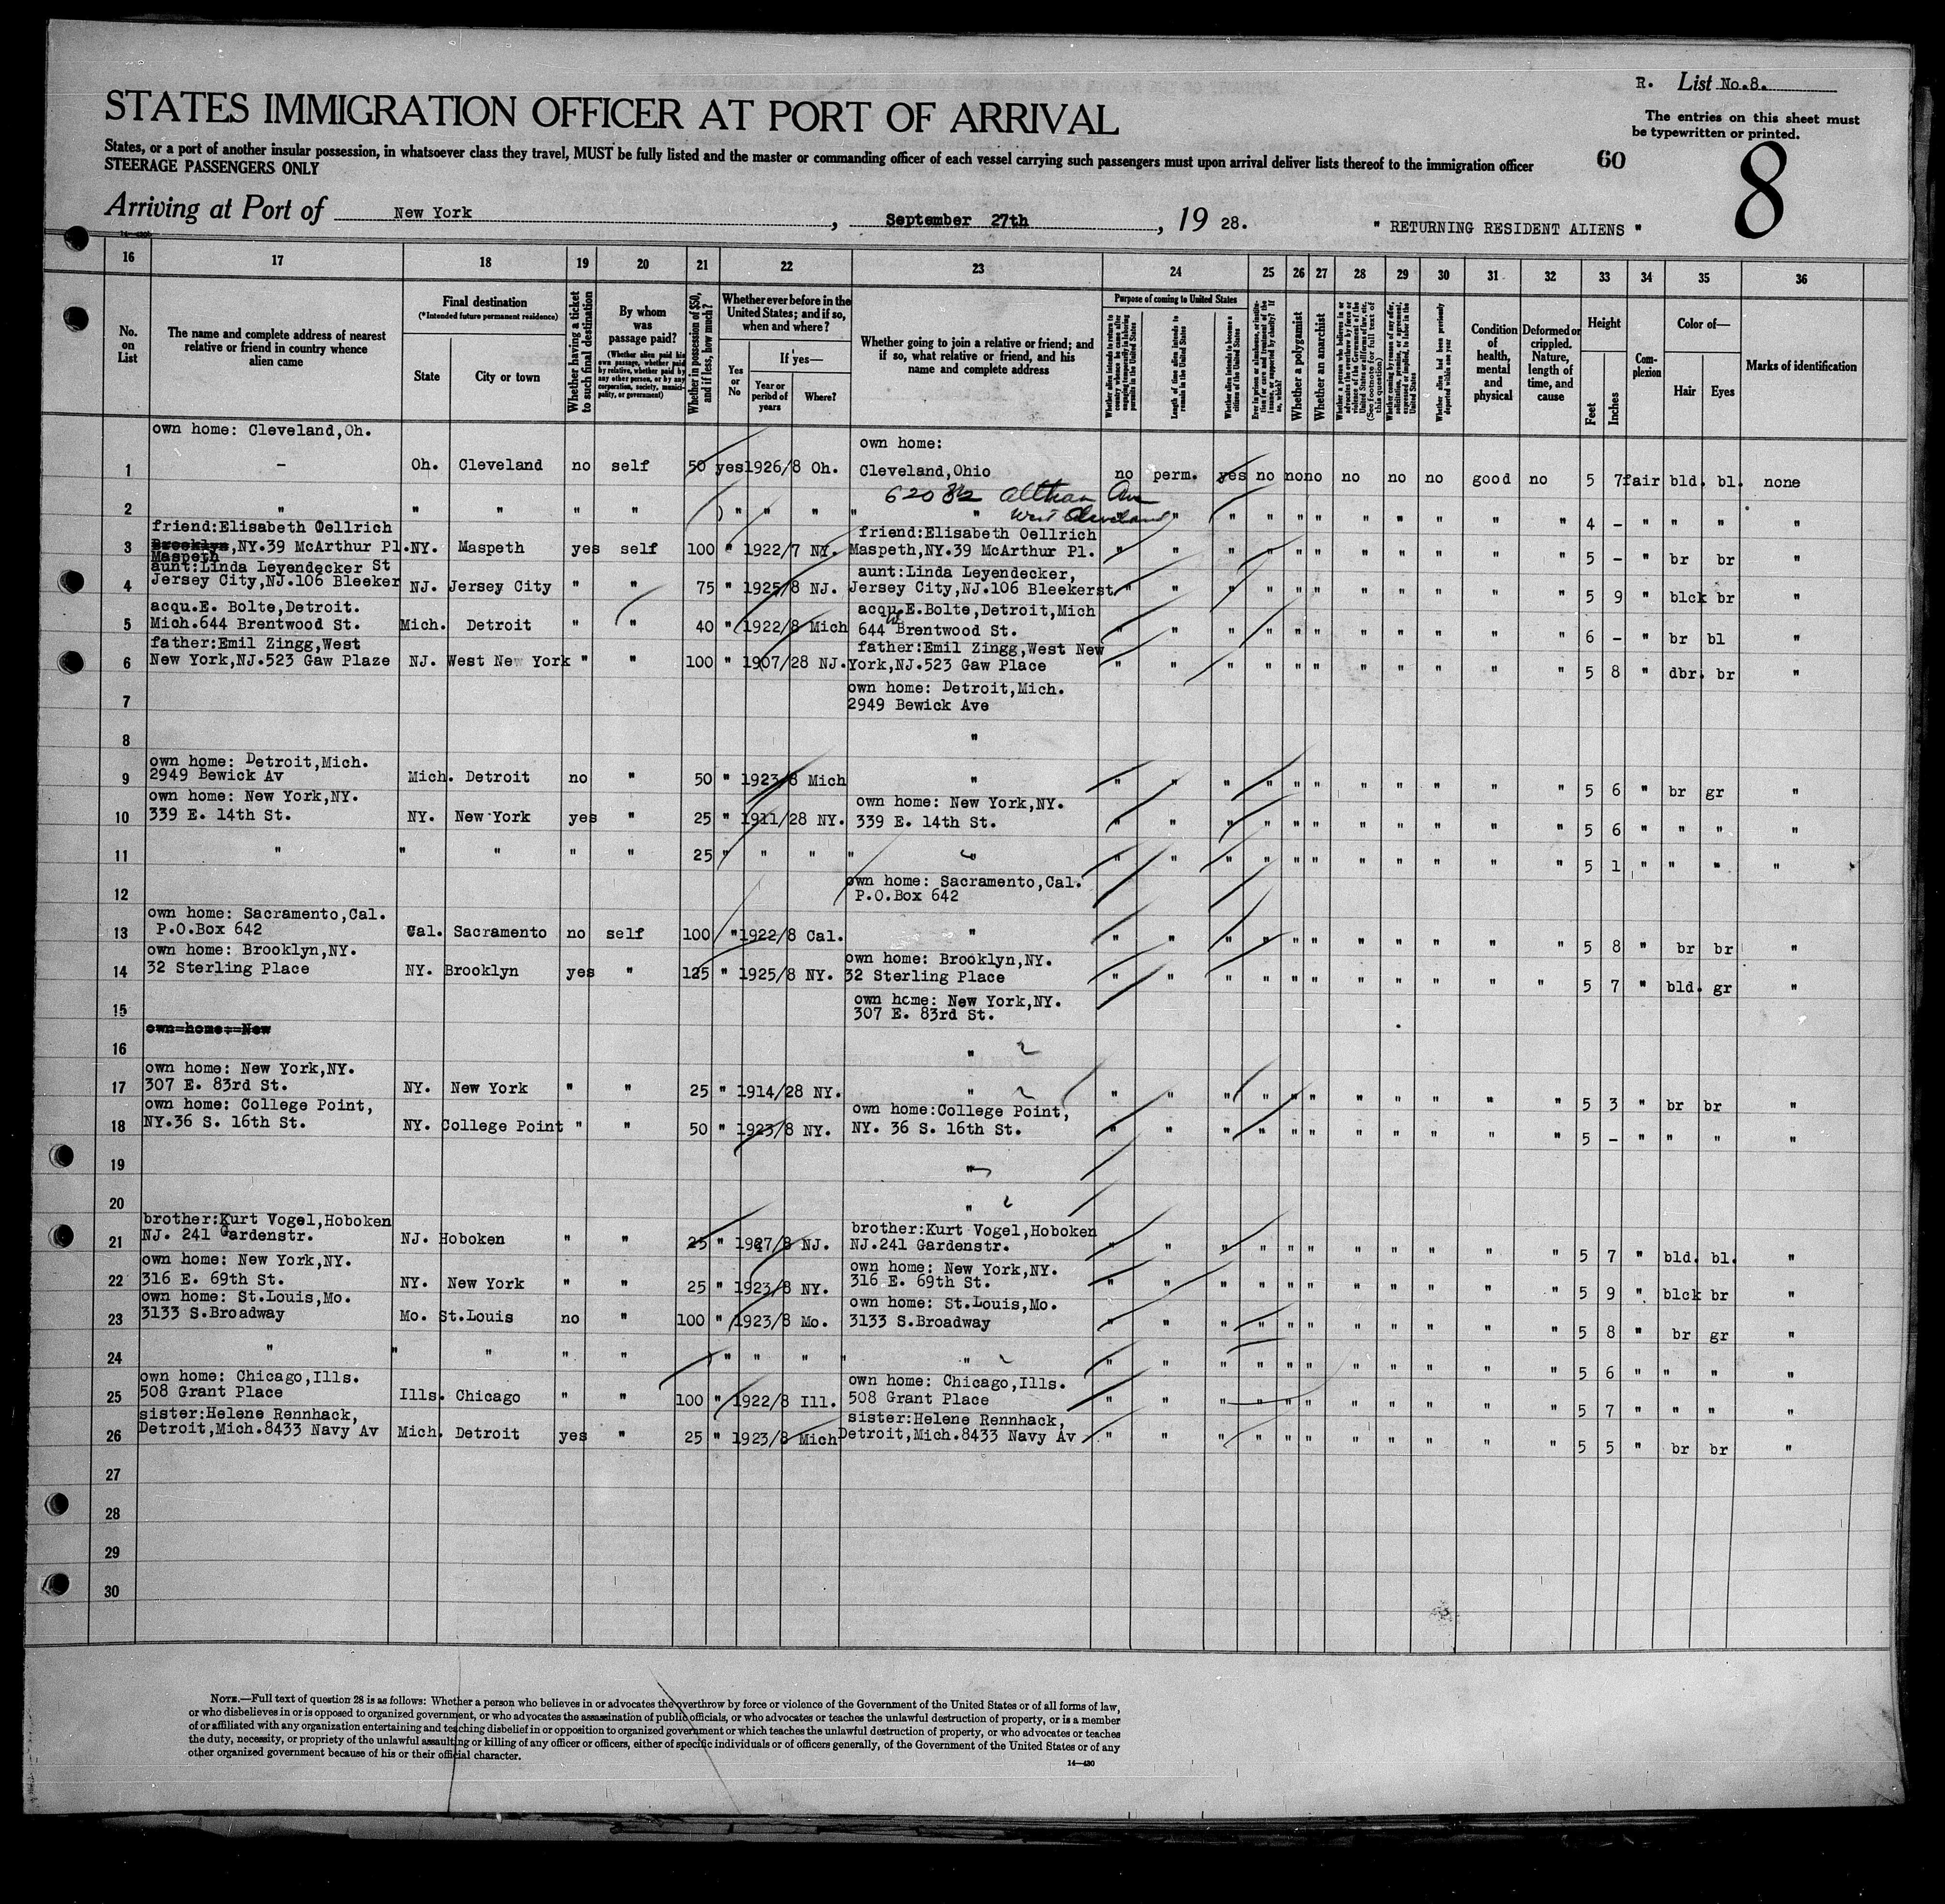 R. List No.8.
STATES IMMIGRATION OFFICER AT PORT OF ARRIVAL
The entries on this sheet must
be typewritten or printed.
States, or a port of another insular possession, in whatsoever class they travel, MUST be fully listed and the master or commanding officer of each vessel carrying such passengers must upon arrival deliver lists thereof to the immigration officer
STEERAGE PASSENGERS ONLY
60
8
Arriving at Port of New York, September 27th, 19 28.
" RETURNING RESIDENT ALIENS "
16 17 18 19 20 21 22 23 24 25 26 27 28 29 30 31 32 33 34 35 36
No. on List
The name and complete address of nearest relative or friend in country whence alien came
Final destination
(*Intended future permanent residence)
State
City or town
Whether having a ticket to such final destination
By whom was passage paid?
(Whether alien paid his own passage, whether paid by relative, whether paid by any other person, or by any corporation, society, municipality, or government)
Whether in possession of $50, and if less, how much?
Whether ever before in the United States; and if so, when and where?
Yes or No
If yes—
Year or period of years
Where?
Whether going to join a relative or friend; and if so, what relative or friend, and his name and complete address
Purpose of coming to United States
Whether alien intends to return to country whence he came after engaging temporarily in laboring pursuits in the United States
Length of time alien intends to remain in the United States
Whether alien intends to become a citizen of the United States
Ever in prison or almshouse, or institution for care and treatment of the insane, or supported by charity? If so, which?
Whether a polygamist
Whether an anarchist
Whether a person who believes in or advocates the overthrow by force or violence of the Government of the United States or all forms of law, etc. (See footnote for full text of this question)
Whether coming by reason of any offer, solicitation, promise, or agreement, expressed or implied, to labor in the United States
Whether alien had been previously deported within one year
Condition of health, mental and physical
Deformed or crippled. Nature, length of time, and cause
Height
Feet
Inches
Complexion
Color of—
Hair
Eyes
Marks of identification
own home: Cleveland,Oh. own home:
1 - Oh. Cleveland no self 50 yes 1926/8 Oh. Cleveland,Ohio no perm. yes no no no no no no good no 5 7 fair bld. bl. none
Ave
West Cleveland
2 " " " " " " " " " " " " " " " " " " " " " 4 - " " " "
friend:Elisabeth Oellrich friend:Elisabeth Oellrich
3 Brooklyn,NY.39 McArthur Pl. NY. Maspeth yes self 100 " 1922/7 NY. Maspeth,NY.39 McArthur Pl. " " " " " " " " " " " 5 - " br br "
Maspeth
aunt:Linda Leyendecker St aunt:Linda Leyendecker,
4 Jersey City,NJ.106 Bleeker NJ. Jersey City " " 75 " 1925/8 NJ. Jersey City,NJ.106 Bleekerst. " " " " " " " " " " " 5 9 " blck br "
acqu.E. Bolte,Detroit. acqu.E.Bolte,Detroit,Mich
5 Mich.644 Brentwood St. Mich. Detroit " " 40 " 1922/8 Mich 644 W Brentwood St. " " " " " " " " " " " 6 - " br bl "
father:Emil Zingg,West father:Emil Zingg,West New
6 New York,NJ.523 Gaw Plaze NJ. West New York " " 100 " 1907/28 NJ. York,NJ.523 Gaw Place " " " " " " " " " " " 5 8 " dbr. br "
own home: Detroit,Mich.
7 2949 Bewick Ave
8 "
own home: Detroit,Mich.
9 2949 Bewick Av Mich. Detroit no " 50 " 1923/8 Mich " " " " " " " " " " " " 5 6 " br gr "
own home: New York,NY. own home: New York,NY.
10 339 E. 14th St. NY. New York yes " 25 " 1911/28 NY. 339 E. 14th St. " " " " " " " " " " " 5 6 " " " "
11 " " " " " 25 " " " " " " " " " " " " " " " " " 5 1 " " " "
own home: Sacramento,Cal.
12 P.O.Box 642
own home: Sacramento,Cal.
13 P.O.Box 642 Cal. Sacramento no self 100 " 1922/8 Cal. " " " " " " " " " " " " 5 8 " br br "
own home: Brooklyn,NY. own home: Brooklyn,NY.
14 32 Sterling Place NY. Brooklyn yes " 125 " 1925/8 NY. 32 Sterling Place " " " " " " " " " " " 5 7 " bld. gr "
own home: New York,NY.
15 307 E. 83rd St.
own home: New
16 "
own home: New York,NY.
17 307 E. 83rd St. NY. New York " " 25 " 1914/28 NY. " " " " " " " " " " " " 5 3 " br br "
own home: College Point, own home:College Point,
18 NY.36 S. 16th St. NY. College Point " " 50 " 1923/8 NY. NY. 36 S. 16th St. " " " " " " " " " " " 5 - " " " "
19 "
20 "
brother:Kurt Vogel,Hoboken brother:Kurt Vogel,Hoboken
21 NJ. 241 Gardenstr. NJ. Hoboken " " 25 " 1927/8 NJ. NJ.241 Gardenstr. " " " " " " " " " " " 5 7 " bld. bl. "
own home: New York,NY. own home: New York,NY.
22 316 E. 69th St. NY. New York " " 25 " 1923/8 NY. 316 E. 69th St. " " " " " " " " " " " 5 9 " blck br "
own home: St.Louis,Mo. own home: St.Louis,Mo.
23 3133 S.Broadway Mo. St.Louis no " 100 " 1923/8 Mo. 3133 S.Broadway " " " " " " " " " " " 5 8 " br gr "
24 " " " " " " " " " " " " " " " " " " " " " " 5 6 " " " "
own home: Chicago,Ills. own home: Chicago,Ills.
25 508 Grant Place Ills. Chicago " " 100 " 1922/8 Ill. 508 Grant Place " " " " " " " " " " " 5 7 " " " "
sister:Helene Rennhack, sister:Helene Rennhack,
26 Detroit,Mich.8433 Navy Av Mich. Detroit yes " 25 " 1923/8 Mich Detroit,Mich.8433 Navy Av " " " " " " " " " " " 5 5 " br br "
27
28
29
30
NOTE.—Full text of question 28 is as follows: Whether a person who believes in or advocates the overthrow by force or violence of the Government of the United States or of all forms of law,
or who disbelieves in or is opposed to organized government, or who advocates the assassination of public officials, or who advocates or teaches the unlawful destruction of property, or is a member
of or affiliated with any organization entertaining and teaching disbelief in or opposition to organized government or which teaches the unlawful destruction of property, or who advocates or teaches
the duty, necessity, or propriety of the unlawful assaulting or killing of any officer or officers, either of specific individuals or of officers generally, of the Government of the United States or of any
other organized government because of his or their official character.
14—430